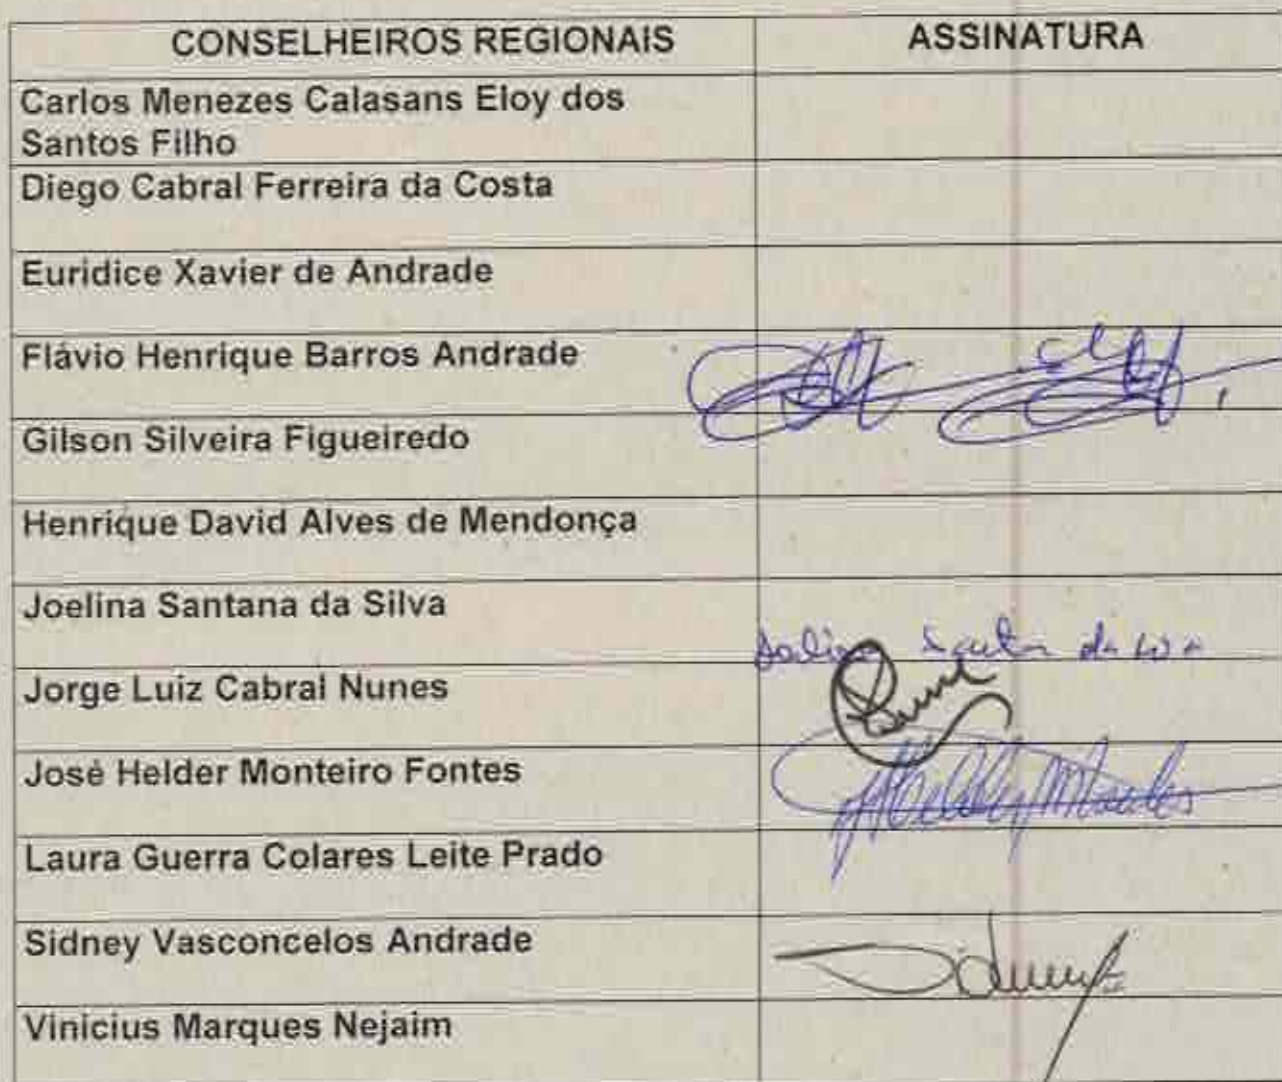 CONSELHEIROS REGIONAIS ASSINATURA
Carlos Menezes Calasans Eloy dos
Santos Filho
Diego Cabral Ferreira da Costa
Euridice Xavier de Andrade
Flávio Henrique Barros Andrade
Gilson Silveira Figueiredo
Henrique David Alves de Mendonça
Joelina Santana da Silva
Jorge Luiz Cabral Nunes
José Helder Monteiro Fontes
Laura Guerra Colares Leite Prado
Sidney Vasconcelos Andrade
Vinicius Marques Nejaim